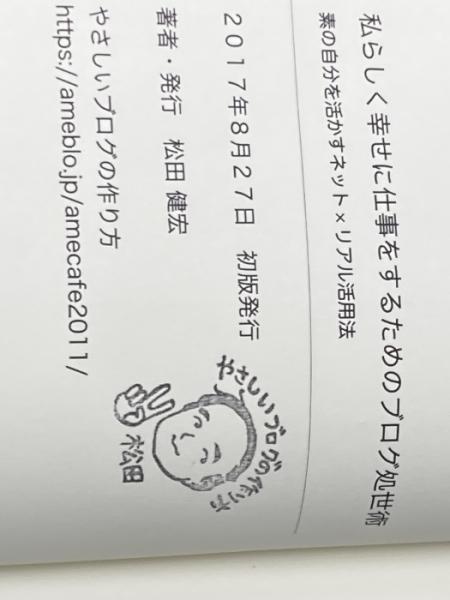 私らしく幸せに仕事をするためのブログ処世術
素の自分を活かすネット×リアル活用法
2017年8月27日 初版発行
著者・発行 松田 健宏
やさしいブログの作り方
https://ameblo.jp/amecafe2011/
やさしいブログの作り方
松田